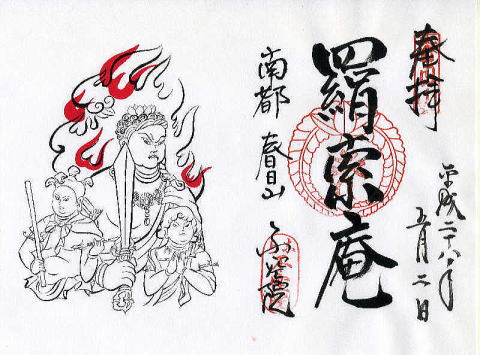 奉拝
平成二十八年
五月二日
羂索庵
南都 春日山
不空院